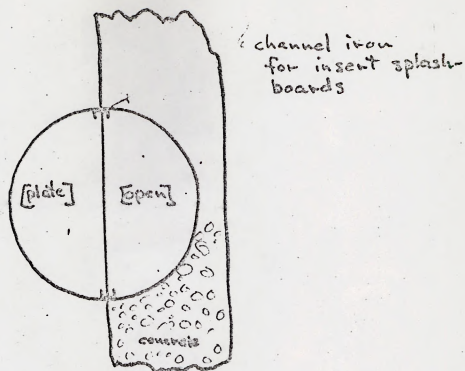 channel iron
for insert splash-
boards
[plate] [open]
concrete